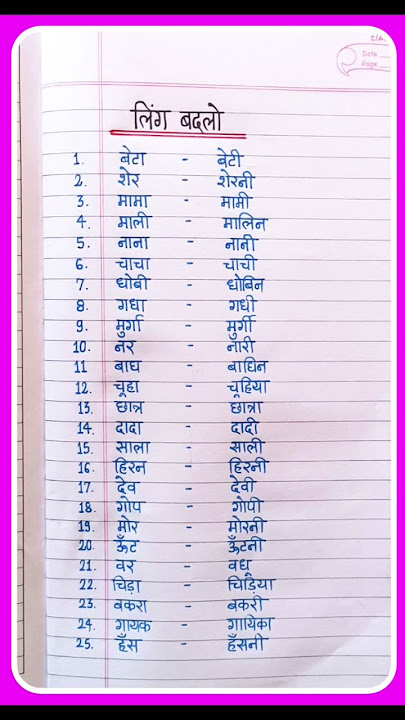 C/A.
Date
Page
लिंग बदलो
1. बेटा - बेटी
2. शेर - शेरनी
3. मामा - मामी
4. माली - मालिन
5. नाना - नानी
6. चाचा - चाची
7. धोबी - धोबिन
8. गधा - गधी
9. मुर्गा - मुर्गी
10. नर - नारी
11 बाघ - बाघिन
12. चूहा - चूहिया
13. छात्र - छात्रा
14. दादा - दादी
15. साला - साली
16. हिरन - हिरनी
17. देव - देवी
18. गोप - गोपी
19. मोर - मोरनी
20. ऊँट - ऊँटनी
21. वर - वधू
22. चिड़ा - चिड़िया
23. बकरा - बकरी
24. गायक - गायिका
25. हँस - हँसनी